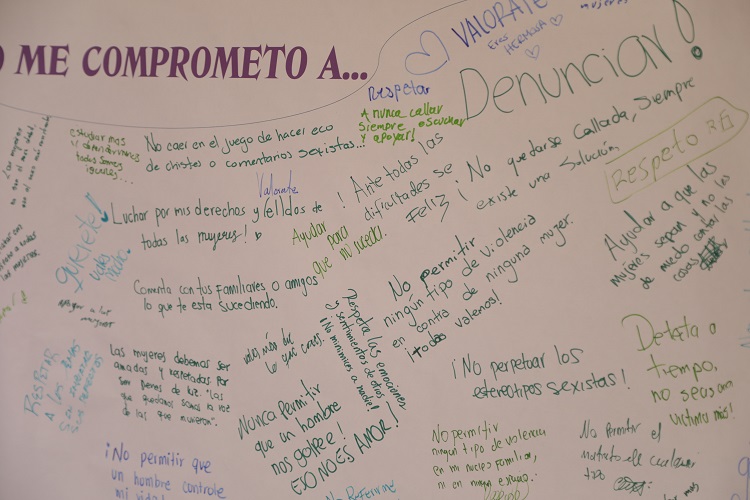 O ME COMPROMETO A...
VALORATE
Eres
HERMOSA
mujeres
DENUNCIAR!
Respetar
A nunca callar
Siempre escuchar
y apoyar!
estudiar mas
y defendernos
todas somos
iguales...
No caer en el juego de hacer eco
de chistes o comentarios sexistas...
Ante todas las
dificultades se
Feliz
¡No quedarse Callada, siempre
existe una solución
Respeto
Valorate
Luchar por mis derechos y el de
todas las mujeres!
Ayudar
para
que no suceda.
QUIERETE!
vida
Ayudar a que las
mujeres sepan y no les
de miedo contar las
cosas
Comenta con tus familiares o amigos
lo que te esta sucediendo.
No permitir
ningún tipo de violencia
en contra de ninguna mujer.
¡todas valemos!
Apoyar a las
mujeres
RESPETAR
A LOS
Las mujeres debemos ser
amadas y respetadas por
ser seres de luz. "Las
que quedamos somos la voz
de las que murieron".
vales más de
lo que crees!
Respeta las emociones
y sentimientos de otros
¡No minimices a nadie!
Nunca Permitir
que un hombre
nos golpee!
ESO NO ES AMOR!
¡No perpetuar los
estereotipos sexistas!
Detecta a
tiempo,
no seas una
víctima más!
¡No permitir que
un hombre controle
mi vida!
No permitir
ningún tipo de violencia
en mi nucleo familiar,
ni en ningún espacio.
No Permitir el
maltrato de cualquier
tipo